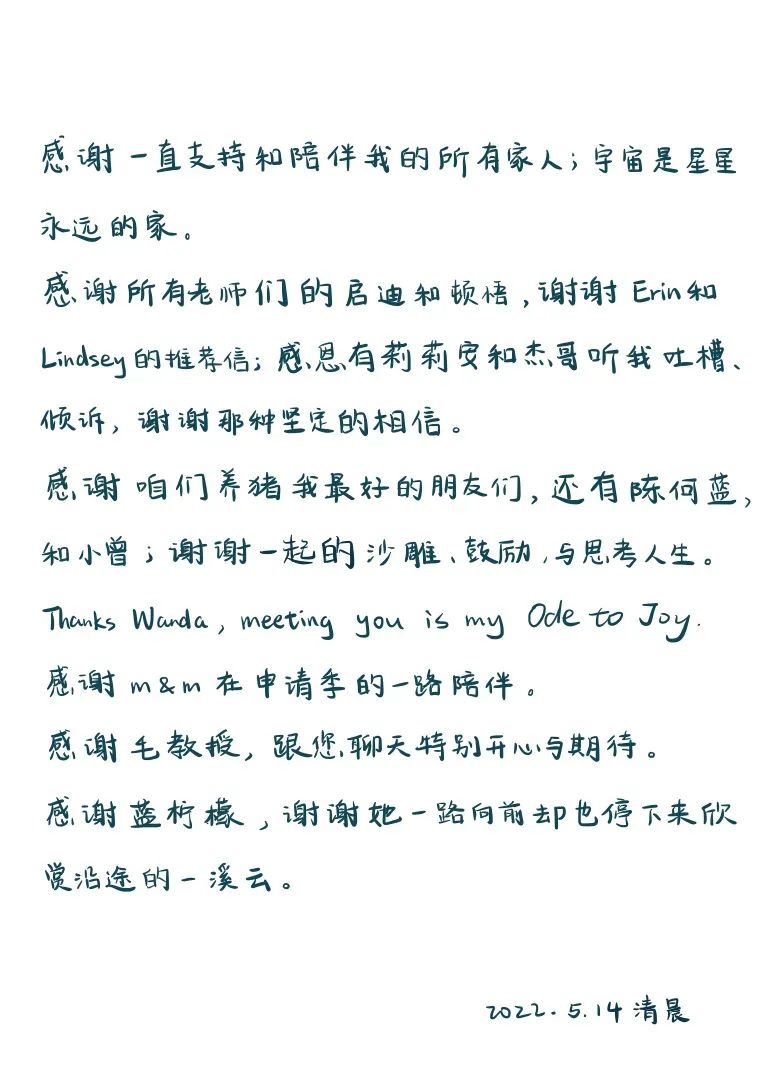 感谢一直支持和陪伴我的所有家人；宇宙是星星
永远的家。
感谢所有老师们的启迪和顿悟，谢谢Erin和
Lindsey的推荐信；感恩有莉莉安和杰哥听我吐槽、
倾诉，谢谢那种坚定的相信。
感谢咱们养猪我最好的朋友们，还有陈何蓝，
和小曾；谢谢一起的沙雕、鼓励、与思考人生。
Thanks Wanda, meeting you is my Ode to Joy.
感谢m&m在申请季的一路陪伴。
感谢毛教授，跟您聊天特别开心与期待。
感谢蓝柠檬，谢谢她一路向前却也停下来欣
赏沿途的一溪云。
2022.5.14清晨